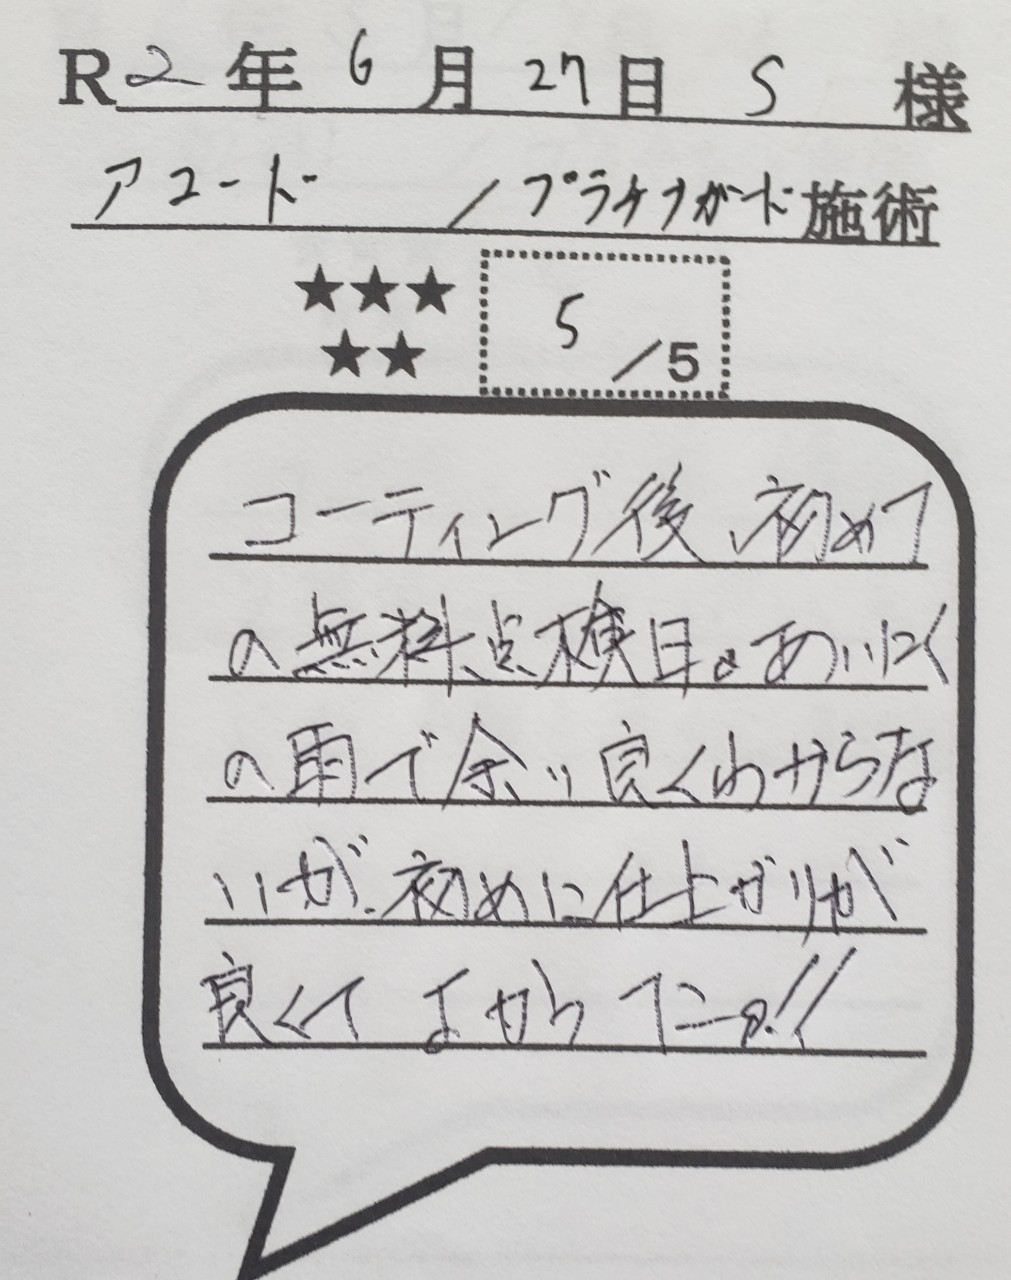 R2年6月27日 S 様
アコード / プラチナガード施術
★★★
★★
5/5
コーティング後、初めて
の無料点検日。あいにく
の雨で余り良くわからな
いが、初めに仕上がりが
良くてよかった。!!